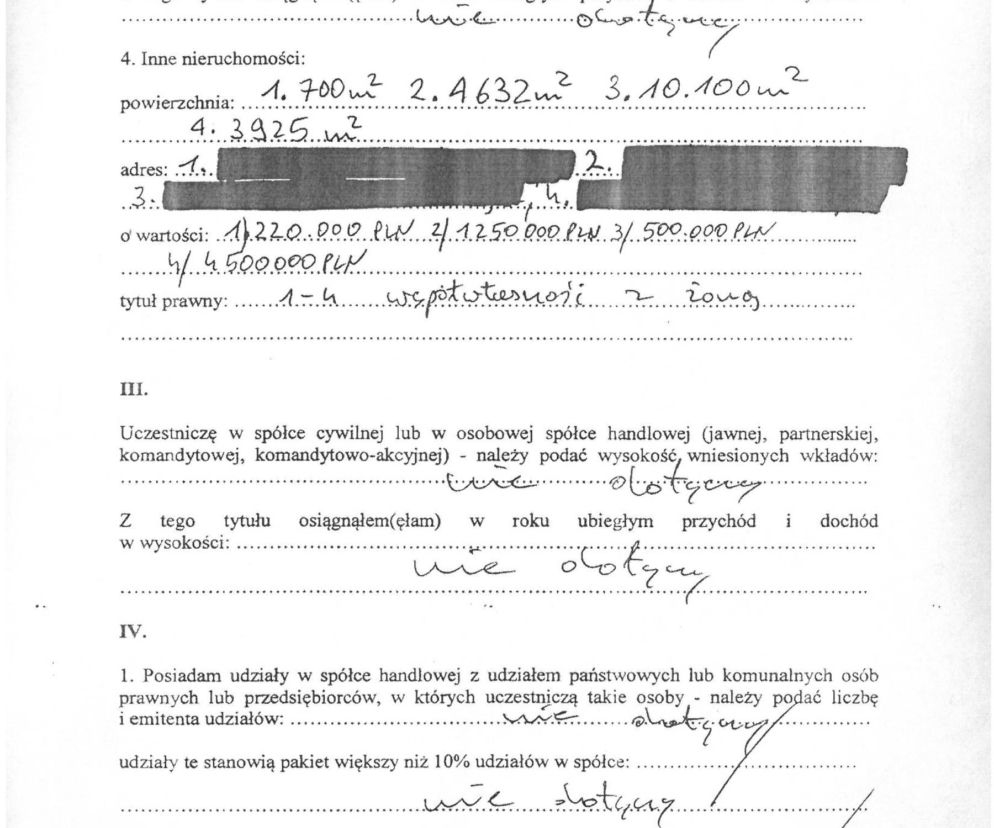 nie dotyczy
4. Inne nieruchomości:
powierzchnia: 1. 700 m² 2. 4632 m² 3. 10.100 m²
4. 3925 m²
adres: 1. 2.
3. 4.
o wartości: 1) 220.000 PLN 2/ 1250 000 PLN 3/ 500.000 PLN
4/ 4 500 000 PLN
tytuł prawny: 1-4 współwłasność z żoną
III.
Uczestniczę w spółce cywilnej lub w osobowej spółce handlowej (jawnej, partnerskiej,
komandytowej, komandytowo-akcyjnej) - należy podać wysokość wniesionych wkładów:
nie dotyczy
Z tego tytułu osiągnąłem(ęłam) w roku ubiegłym przychód i dochód
w wysokości:
nie dotyczy
IV.
1. Posiadam udziały w spółce handlowej z udziałem państwowych lub komunalnych osób
prawnych lub przedsiębiorców, w których uczestniczą takie osoby - należy podać liczbę
i emitenta udziałów: nie dotyczy
udziały te stanowią pakiet większy niż 10% udziałów w spółce:
nie dotyczy